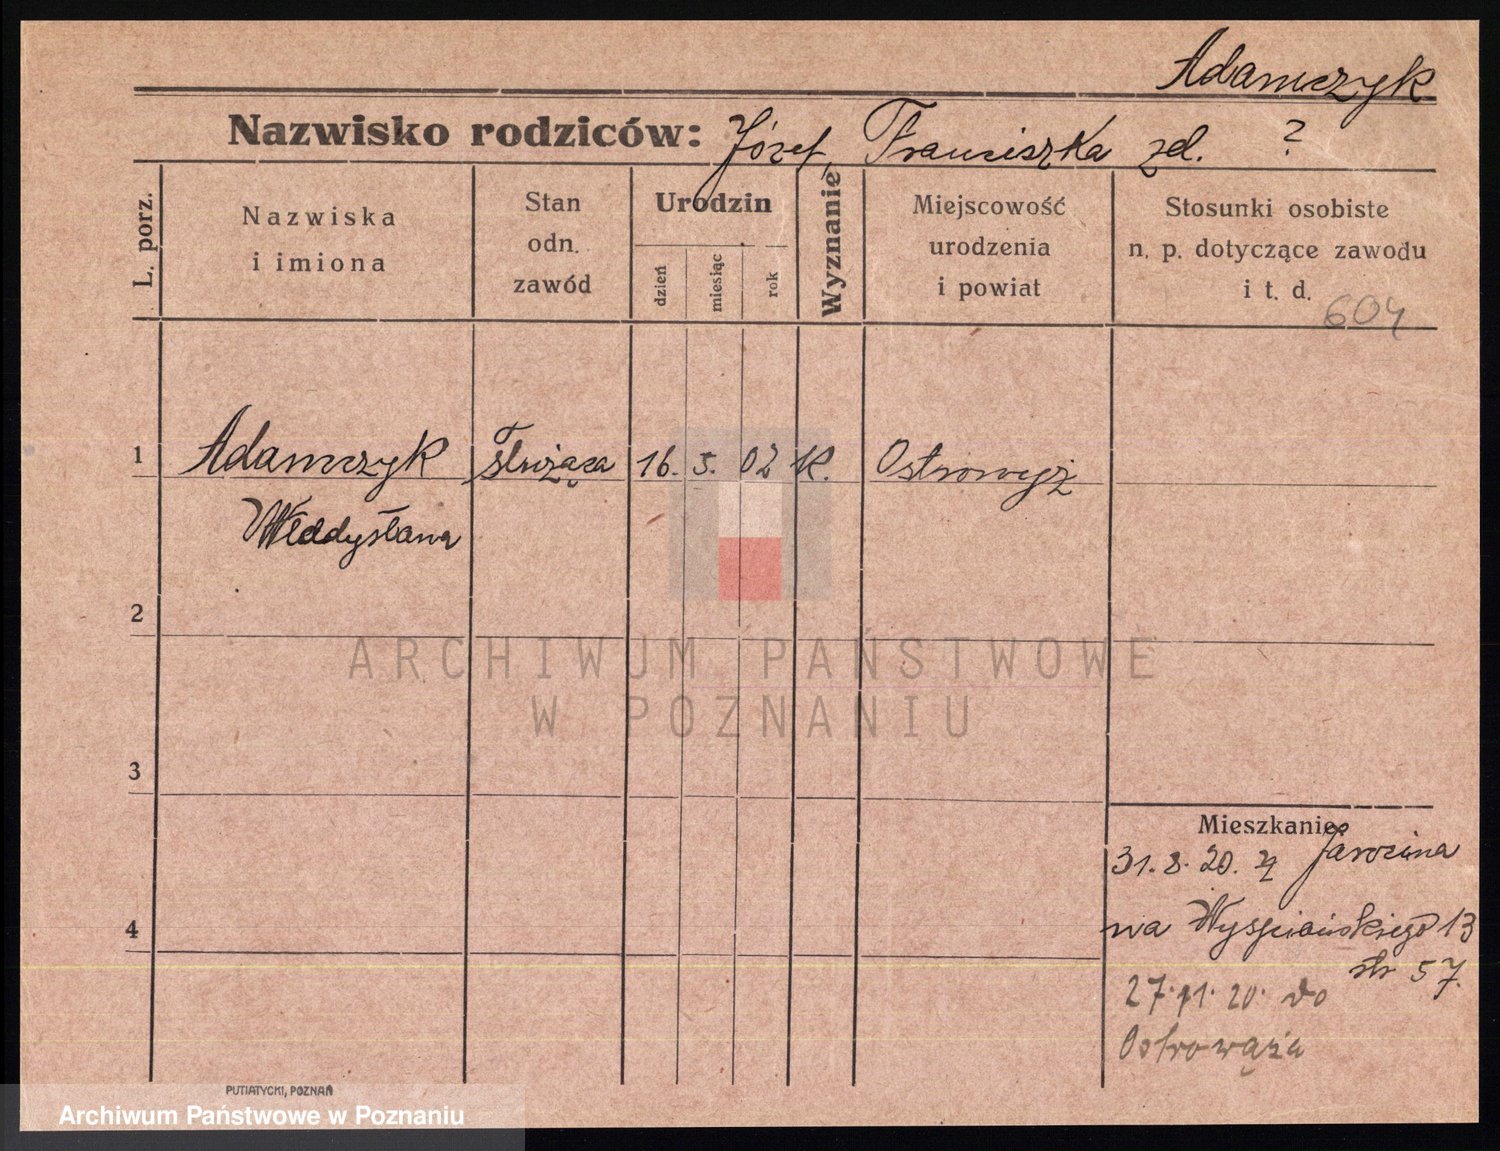 Adamczyk
Nazwisko rodziców: Józef, Franciszka zd. ?
L. porz.
Nazwiska
i imiona
Stan
odn.
zawód
Urodzin
dzień
miesiąc
rok
Wyznanie
Miejscowość
urodzenia
i powiat
Stosunki osobiste
n. p. dotyczące zawodu
i t. d.
604
1 Adamczyk służąca 16. 5. 02 K. Ostrowąż
Władysława
2
ARCHIWUM PAŃSTWOWE
W POZNANIU
3
Mieszkanie:
31.8.20. z Jarocina
4
na Wyspiańskiego 13
str 57.
27.11.20. do
Ostrowąża
PUTIATYCKI, POZNAŃ
Archiwum Państwowe w Poznaniu